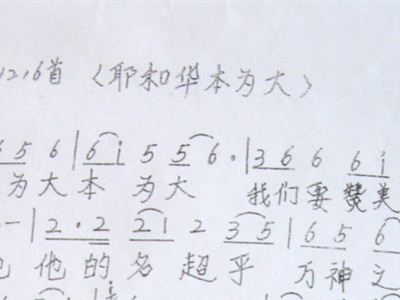 1216首 〈耶和华本为大〉
5 6 | 6 i 5 5 6 · | 3 6 6 6 i
为大本 为大 我们要赞美
- | 2 · 2 2 1 2 3 5 | 6 5 6
他的名超乎 万神之